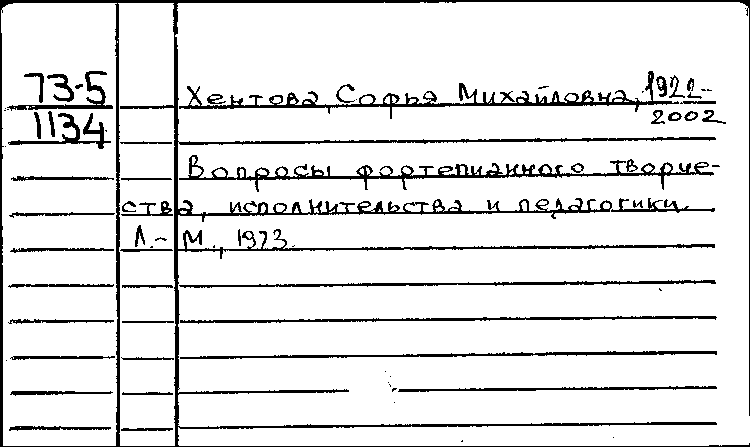 73-5 Хентова, Софья Михайловна, 1922-
1134 2002
Вопросы фортепианного творче-
ства, исполнительства и педагогики.
Л.-М., 1973.